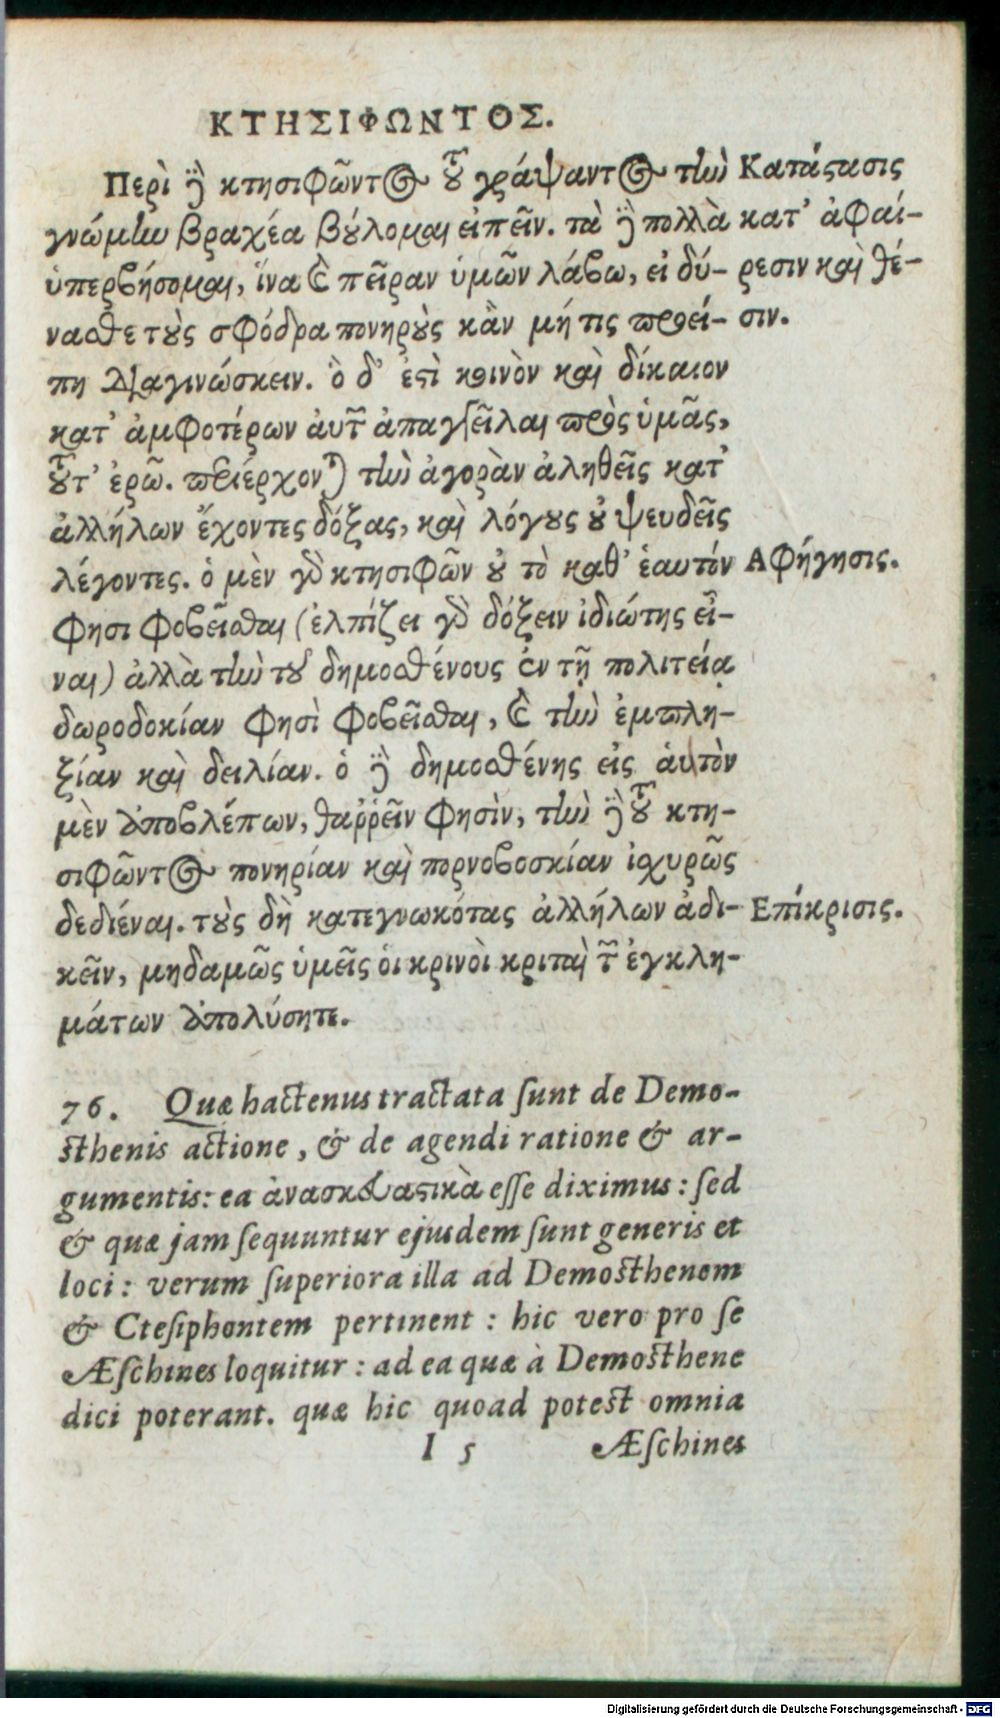 ΚΤΗΣΙΦΩΝΤΟΣ.
Περὶ δὲ κτησιφῶντος τοῦ γράψαντος τὴν
γνώμην βραχέα βούλομαι εἰπεῖν. τὰ δὲ πολλὰ
ὑπερβήσομαι, ἵνα καὶ πεῖραν ὑμῶν λάβω, εἰ δύ-
νασθε τοὺς σφόδρα πονηροὺς κἂν μή τις προεί-
πῃ διαγινώσκειν. ὃ δ' ἐστὶ κοινὸν καὶ δίκαιον
κατ' ἀμφοτέρων αὐτῶν ἀπαγγεῖλαι πρὸς ὑμᾶς,
τοῦτ' ἐρῶ. περιέρχονται τὴν ἀγορὰν ἀληθεῖς κατ'
ἀλλήλων ἔχοντες δόξας, καὶ λόγους οὐ ψευδεῖς
λέγοντες. ὁ μὲν γὰρ κτησιφῶν οὐ τὸ καθ' ἑαυτόν
φησι φοβεῖσθαι (ἐλπίζει γὰρ δόξειν ἰδιώτης εἶ-
ναι) ἀλλὰ τὴν τοῦ δημοσθένους ἐν τῇ πολιτείᾳ
δωροδοκίαν φησὶ φοβεῖσθαι, καὶ τὴν ἐμπλη-
ξίαν καὶ δειλίαν. ὁ δὲ δημοσθένης εἰς αὑτὸν
μὲν ἀποβλέπων, θαῤῥεῖν φησὶν, τὴν δὲ τοῦ κτη-
σιφῶντος πονηρίαν καὶ πορνοβοσκίαν ἰσχυρῶς
δεδιέναι. τοὺς δὴ κατεγνωκότας ἀλλήλων ἀδι-
κεῖν, μηδαμῶς ὑμεῖς οἱ κρινοὶ κριταὶ τῶν ἐγκλη-
μάτων ἀπολύσητε.
Κατάστασις
κατ' ἀφαί-
ρεσιν καὶ θέ-
σιν.
Αφήγησις.
Επίκρισις.
76. Quæ hactenus tractata sunt de Demo-
sthenis actione, & de agendi ratione & ar-
gumentis: ea ἀνασκευαστικὰ esse diximus: sed
& quæ jam sequuntur ejusdem sunt generis et
loci: verum superiora illa ad Demosthenem
& Ctesiphontem pertinent: hic vero pro se
Æschines loquitur: ad ea quæ à Demosthene
dici poterant. quæ hic quoad potest omnia
I 5 Æschines
Digitalisierung gefördert durch die Deutsche Forschungsgemeinschaft - DFG